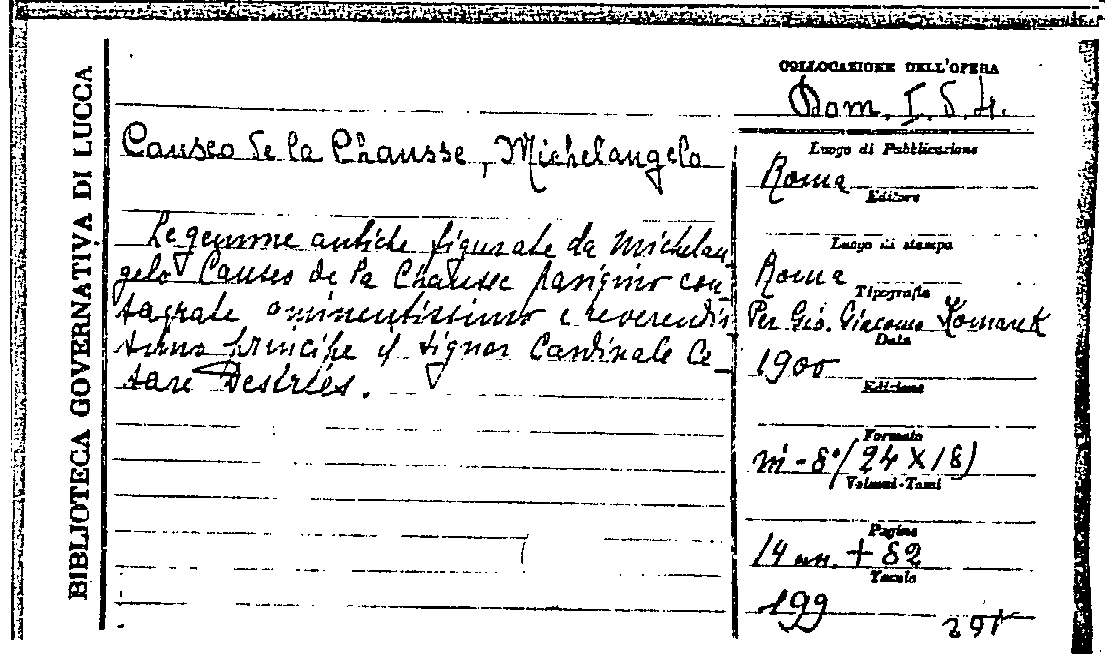 BIBLIOTECA GOVERNATIVA DI LUCCA
Causeo de la Chausse, Michelangelo
Le gemme antiche figurate da Michelan-
gelo Causeo de la Chausse parigino con-
sagrate eminentissimo e reverendis
simo principe il signor Cardinale Ce-
sare Destrées.
COLLOCAZIONE DELL'OPERA
Dom. I. 5. 4.
Luogo di Pubblicazione
Roma
Editore
Luogo di stampa
Roma
Tipografia
Per Gio. Giacomo Komarek
Data
1900
Edizione
Formato
in-8° (24 X 18)
Volumi-Tomi
Pagine
14 nn. + 82
Tavole
199